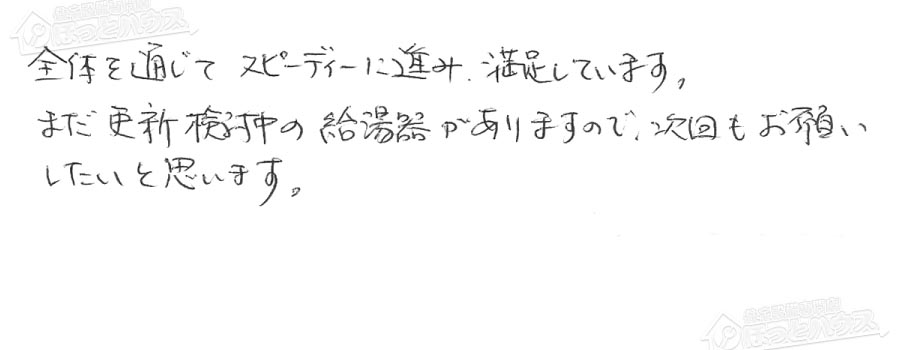 住宅設備専門店
ほっとハウス
全体を通じて スピーディーに進み、満足しています。
まだ更新検討中の給湯器がありますので、次回もお願い
したいと思います。
住宅設備専門店
ほっとハウス